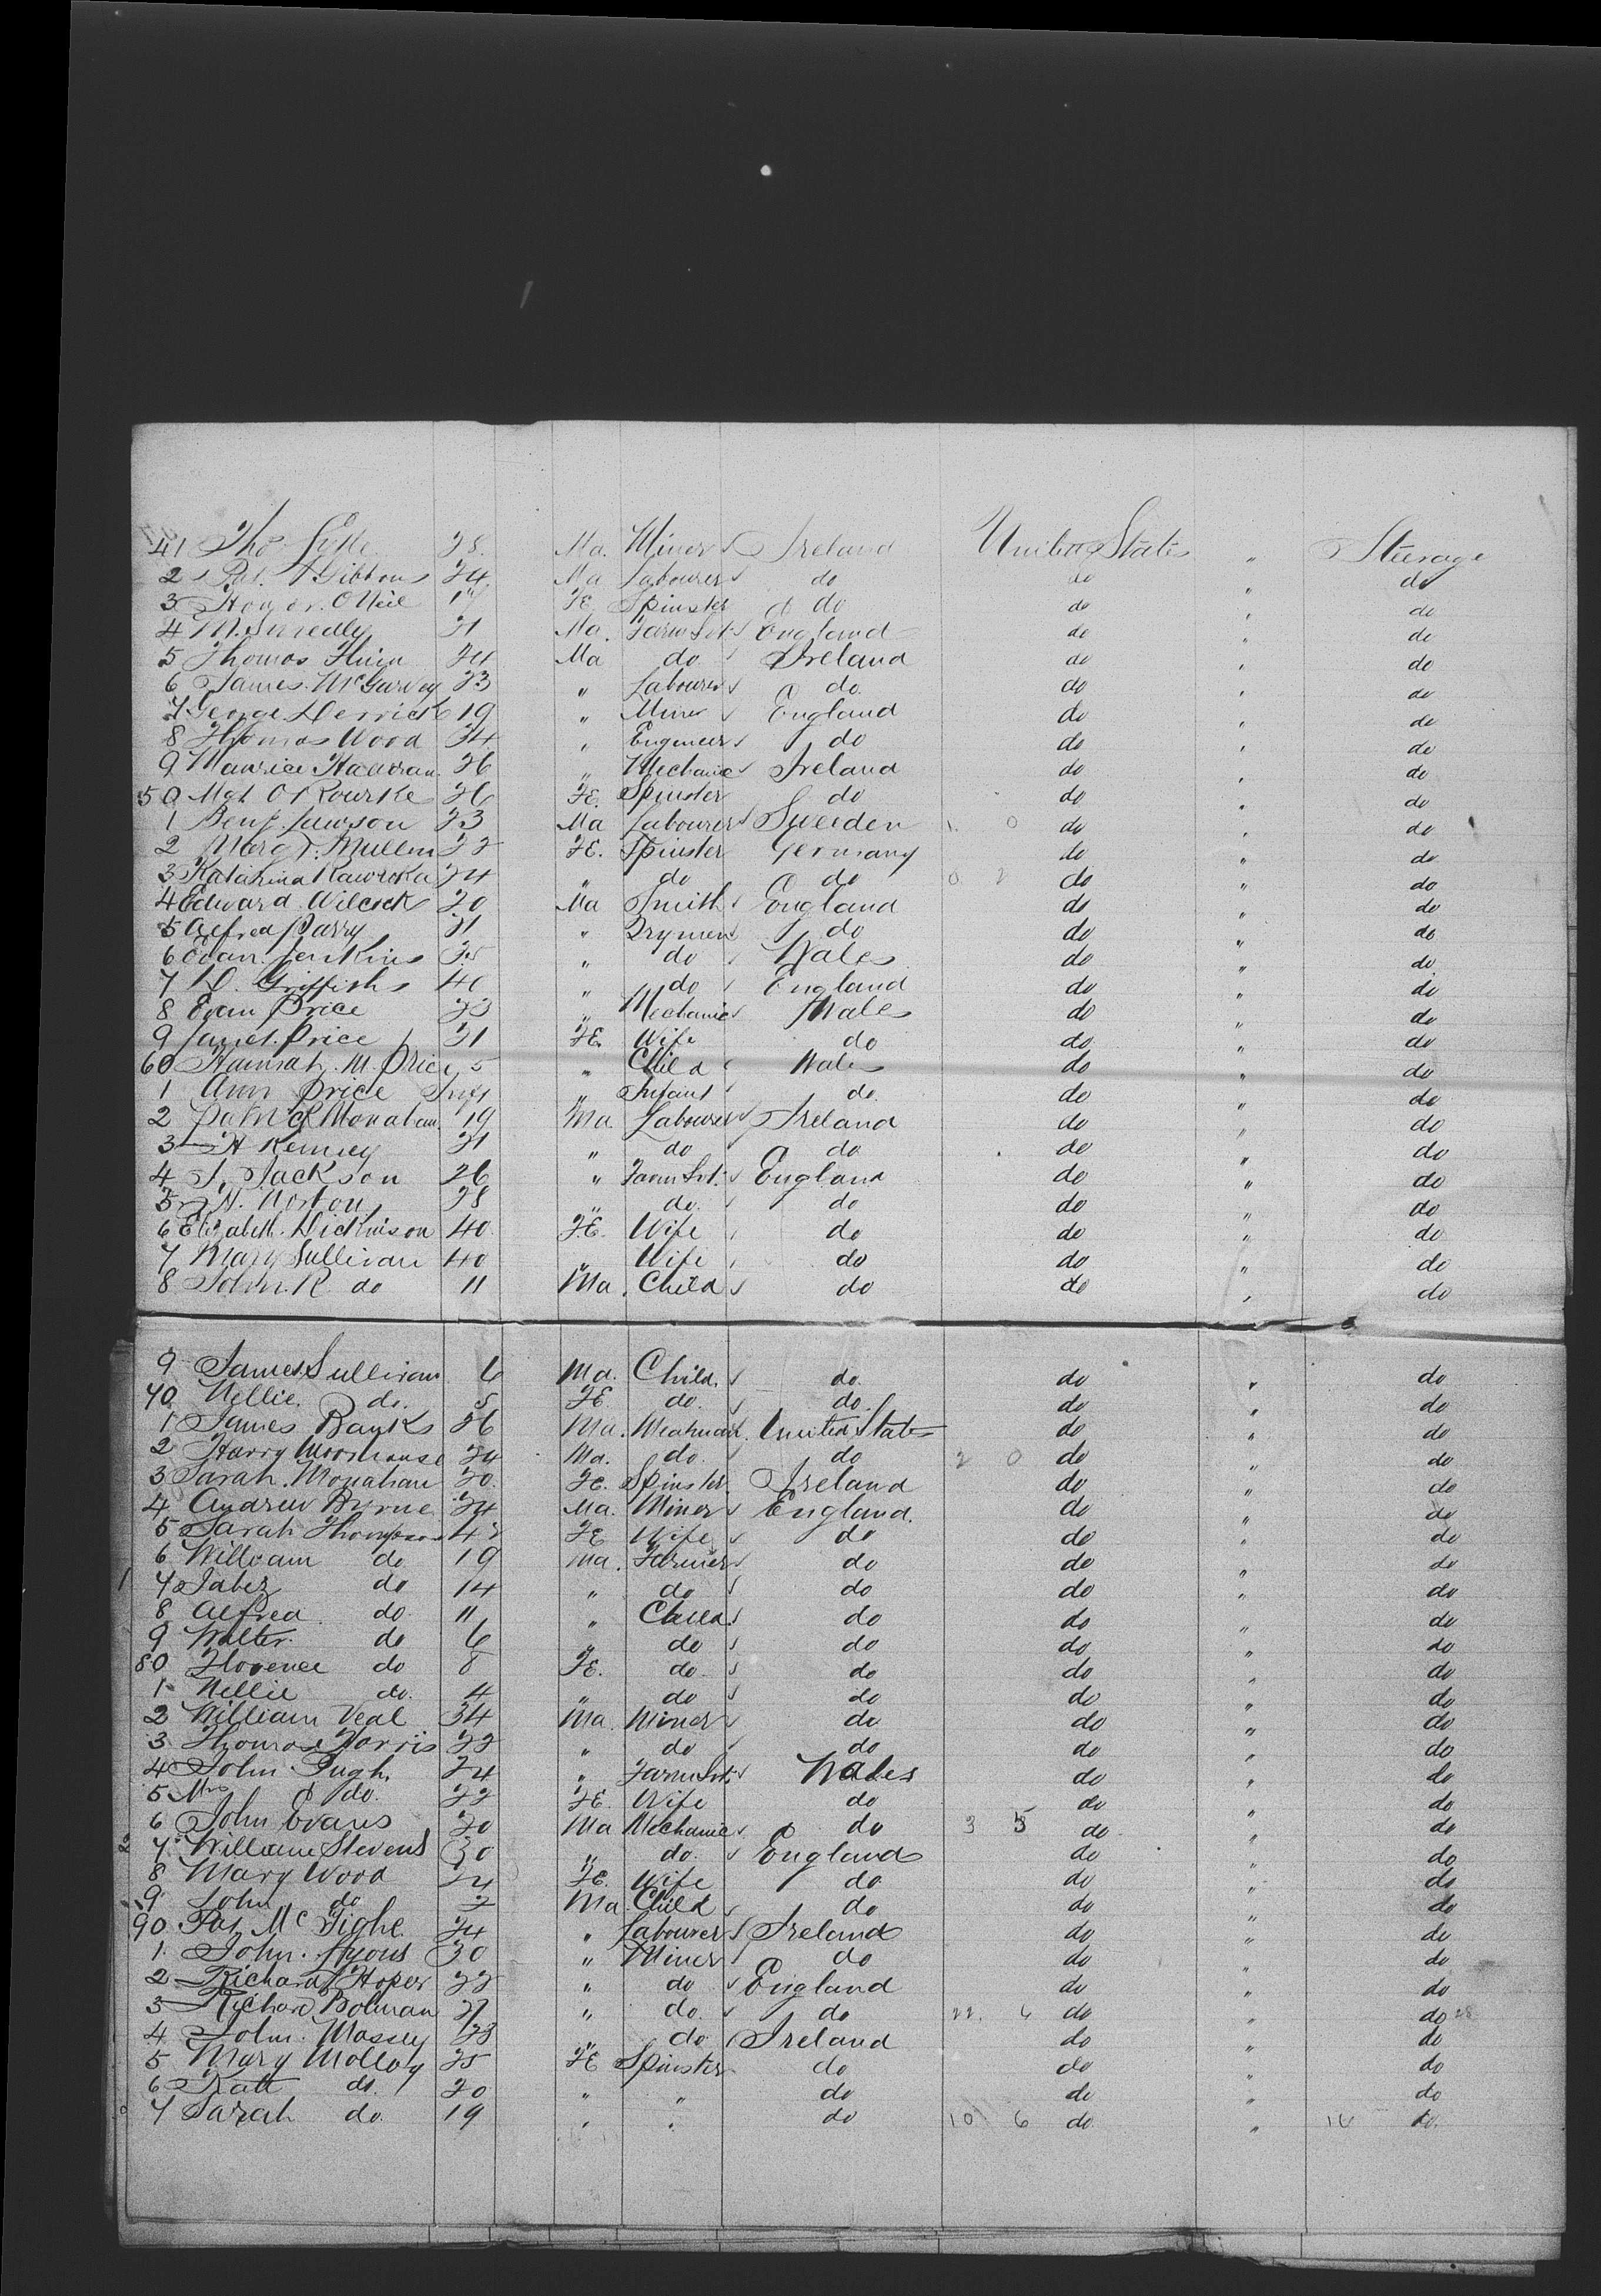 41 Tho Lyle 28. Ma. Miner Ireland United States " Steerage
2 Pat. Gibbons 24. Ma Labourer do do " do
3 O'Neil 17 FE Spinster do do " do
4 M. Smedly 21 Ma. Farm Svt. England do " do
5 Thomas Flinn 24 Ma do Ireland do " do
6 James McGarvey 23 " Labourer do. do " do
7 George Derrick 19 " Miner England do " do
8 Thomas Wood 34 " Engineer do do " do
9 Maurice 26 " Mechanic Ireland do " do
50 Mgt O'Rourke 26 FE. Spinster do do " do
1 Benj. Lawson 23 Ma Labourer Sweden 1. 0 do " do
2 Margt. Mullen 22 FE. Spinster Germany do " do
3 Katahina 24 " do do 0 2 do " do
4 Edward Wilcock 20 Ma Smith England do " do
5 Alfred Parry 21 " do do " do
6 Evan Jenkins 25 " do Wales do " do
7 D. Griffiths 40 " do England do " do
8 Evan Price 23 " Mechanic Wales do " do
9 Janet Price 21 FE. Wife do do " do
60 Hannah. M. Price 5 " Child Wales do " do
1 Ann Price Inft " Infant do. do " do
2 Patrick Monahan 19 Ma. Labourer Ireland do " do
3 H Kenney 21 " do do do " do
4 J. Jackson 26 " Farm Svt. England do " do
5 N. Norton 28 " do. do do " do
6 Elizabeth. Dickinson 40. FE. Wife do do " do
7 Mary Sullivan 40 " Wife do do " do
8 John. R. do 11 Ma. Child do do " do
9 James Sullivan 6 Ma. Child. do. do " do
70 Nellie do. 5 FE do. do. do " do
1 James Banks 26 Ma. United States do " do
2 Harry Moorhouse 24 Ma. do. do 2 0 do " do
3 Sarah. Monahan 20. FE. Spinster. Ireland do " do
4 Andrew Byrne 24 Ma. Miner England. do " do
5 Sarah Thompson FE Wife do do " do
6 William do 19 Ma. Farmer do do " do
7 Jabez do 14 " do do do " do
8 Alfred do. 11 " Child do do " do
9 Walter. do 6 " do do do " do
80 Florence do 8 FE. do. do do " do
1 Nellie do. 4 " do do do " do
2 William Veal 34 Ma. Miner do do " do
3 Thomas 22 " do do do " do
4 John Pugh. 24 " Farm Svt. Wales do " do
5 Mrs do. 22 FE. Wife do do " do
6 John Evans 20 Ma Mechanic do 3 5 do " do
7 William Stevens 30 " do. England do " do
8 Mary Wood 24 FE. Wife do do " do
9 John do 2 Ma. Child do do " do
90 Pat Mc Tighe. 24 " Labourer Ireland do " do
1. John. Lyons 30 " Miner do do " do
2 Richard Hoper 22 " do England do " do
3 Richard Bolman 27 " do. do 22. 6 do " do 28
4 John. Massey 23 " do Ireland do " do
5 Mary Molloy 25 FE Spinster do do " do
6 Kate do. 20 " " do do " do
7 Sarah do. 19 " " do 10 6 do " 16 do.